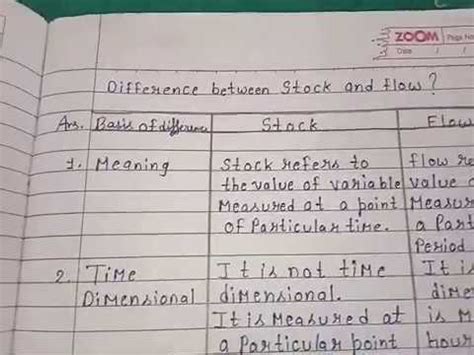 ZOOM Page No
Date / /
Difference between Stock and flow?
Ans. Basis of difference Stock Flow
1. Meaning Stock refers to flow re
the value of variable value o
Measured at a point Measur
of Particular time. a Part
Period
2. Time It is not time It is
Dimensional dimensional. dime
It is Measured at is M
a Particular point hour